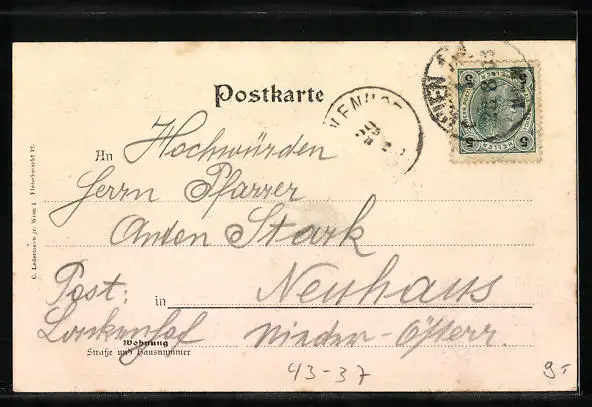 Postkarte
An Hochwürden
Herrn Pfarrer
Anton Stark
Post: in Neuhaus
Nieder-Österr.
Wohnung
Straße und Hausnummer
43-37
9,-
C. Ledermann jr. Wien I Fleischmarkt 12.
WIEN
5 5
HELLER
5 5